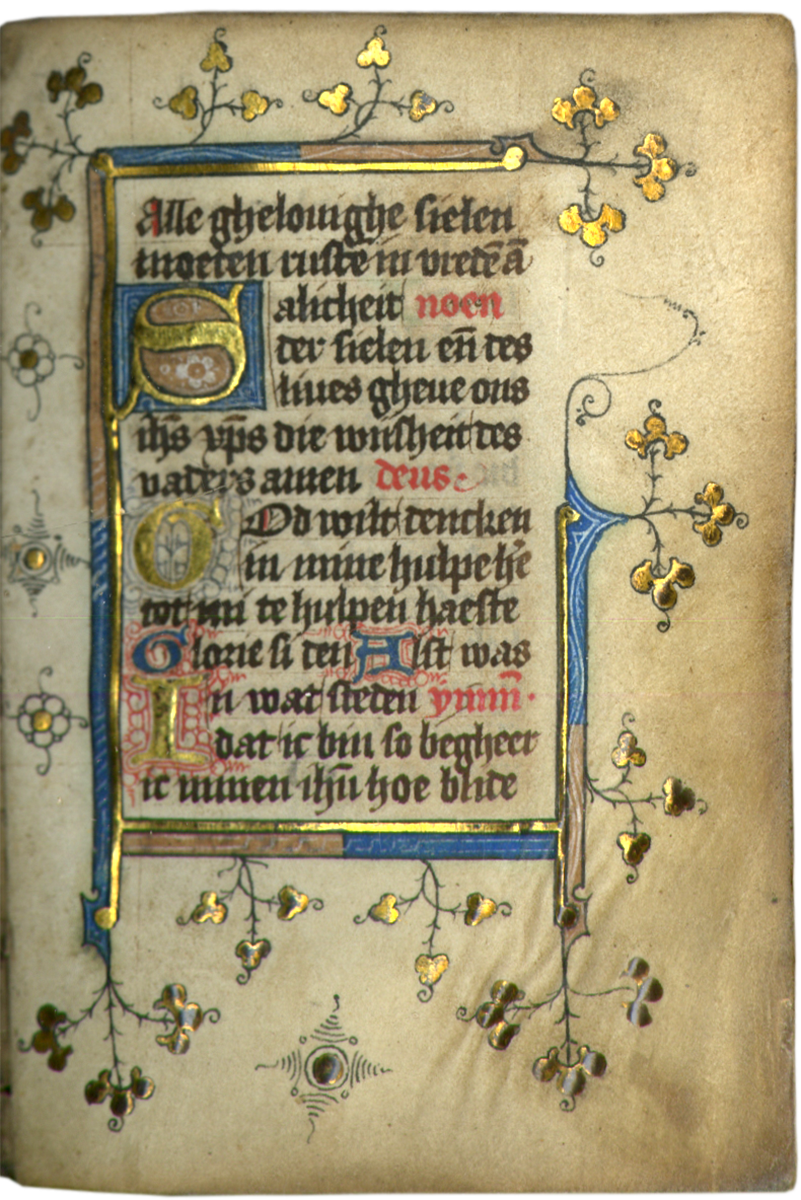 Alle ghelouighe sielen
moeten rusten in vredē ā
Salicheit noen
der sielen en̄ des
liues gheue ons
ih̄s xp̄s die wijsheit des
vaders amen deus
God wilt dencken
in mine hulpe hē
tot mi te hulpen haeste
Glorie si den Alst was
In wat steden ymn̄
dat ic bin so begheer
ic minen ihū hoe blide